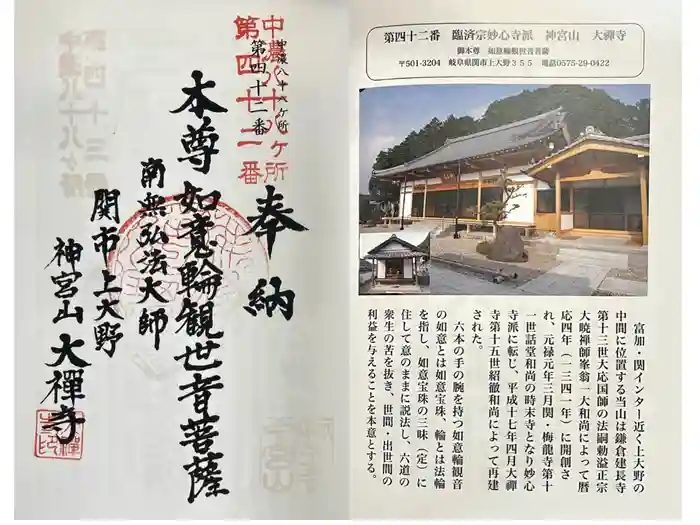 第四十二番　臨済宗妙心寺派　神宮山　大禅寺
御本尊　如意輪観世音菩薩
〒501-3204　岐阜県関市上大野３５５　電話0575-29-0422
富加・関インター近く上大野の
中間に位置する当山は鎌倉建長寺
第十三世大応国師の法嗣勅溢正宗
大暁禅師峯翁一大和尚によって暦
応四年（一三四一年）に開創さ
れ、元禄元年三月関・梅龍寺第十
一世話堂和尚の時末寺となり妙心
寺派に転じ、平成十七年四月大禅
寺第十五世紹徹和尚によって再建
された。
六本の手の腕を持つ如意輪観音
の如意とは如意宝珠、輪とは法輪
を指し、如意宝珠の三昧（定）に
住して意のままに説法し、六道の
衆生の苦を抜き、世間・出世間の
利益を与えることを本意とする。
中濃八十八ヶ所
第四十二番
中濃八十八ヶ所
第四十二番
奉納
本尊如意輪観世音菩薩
南無弘法大師
関市上大野
神宮山大禅寺